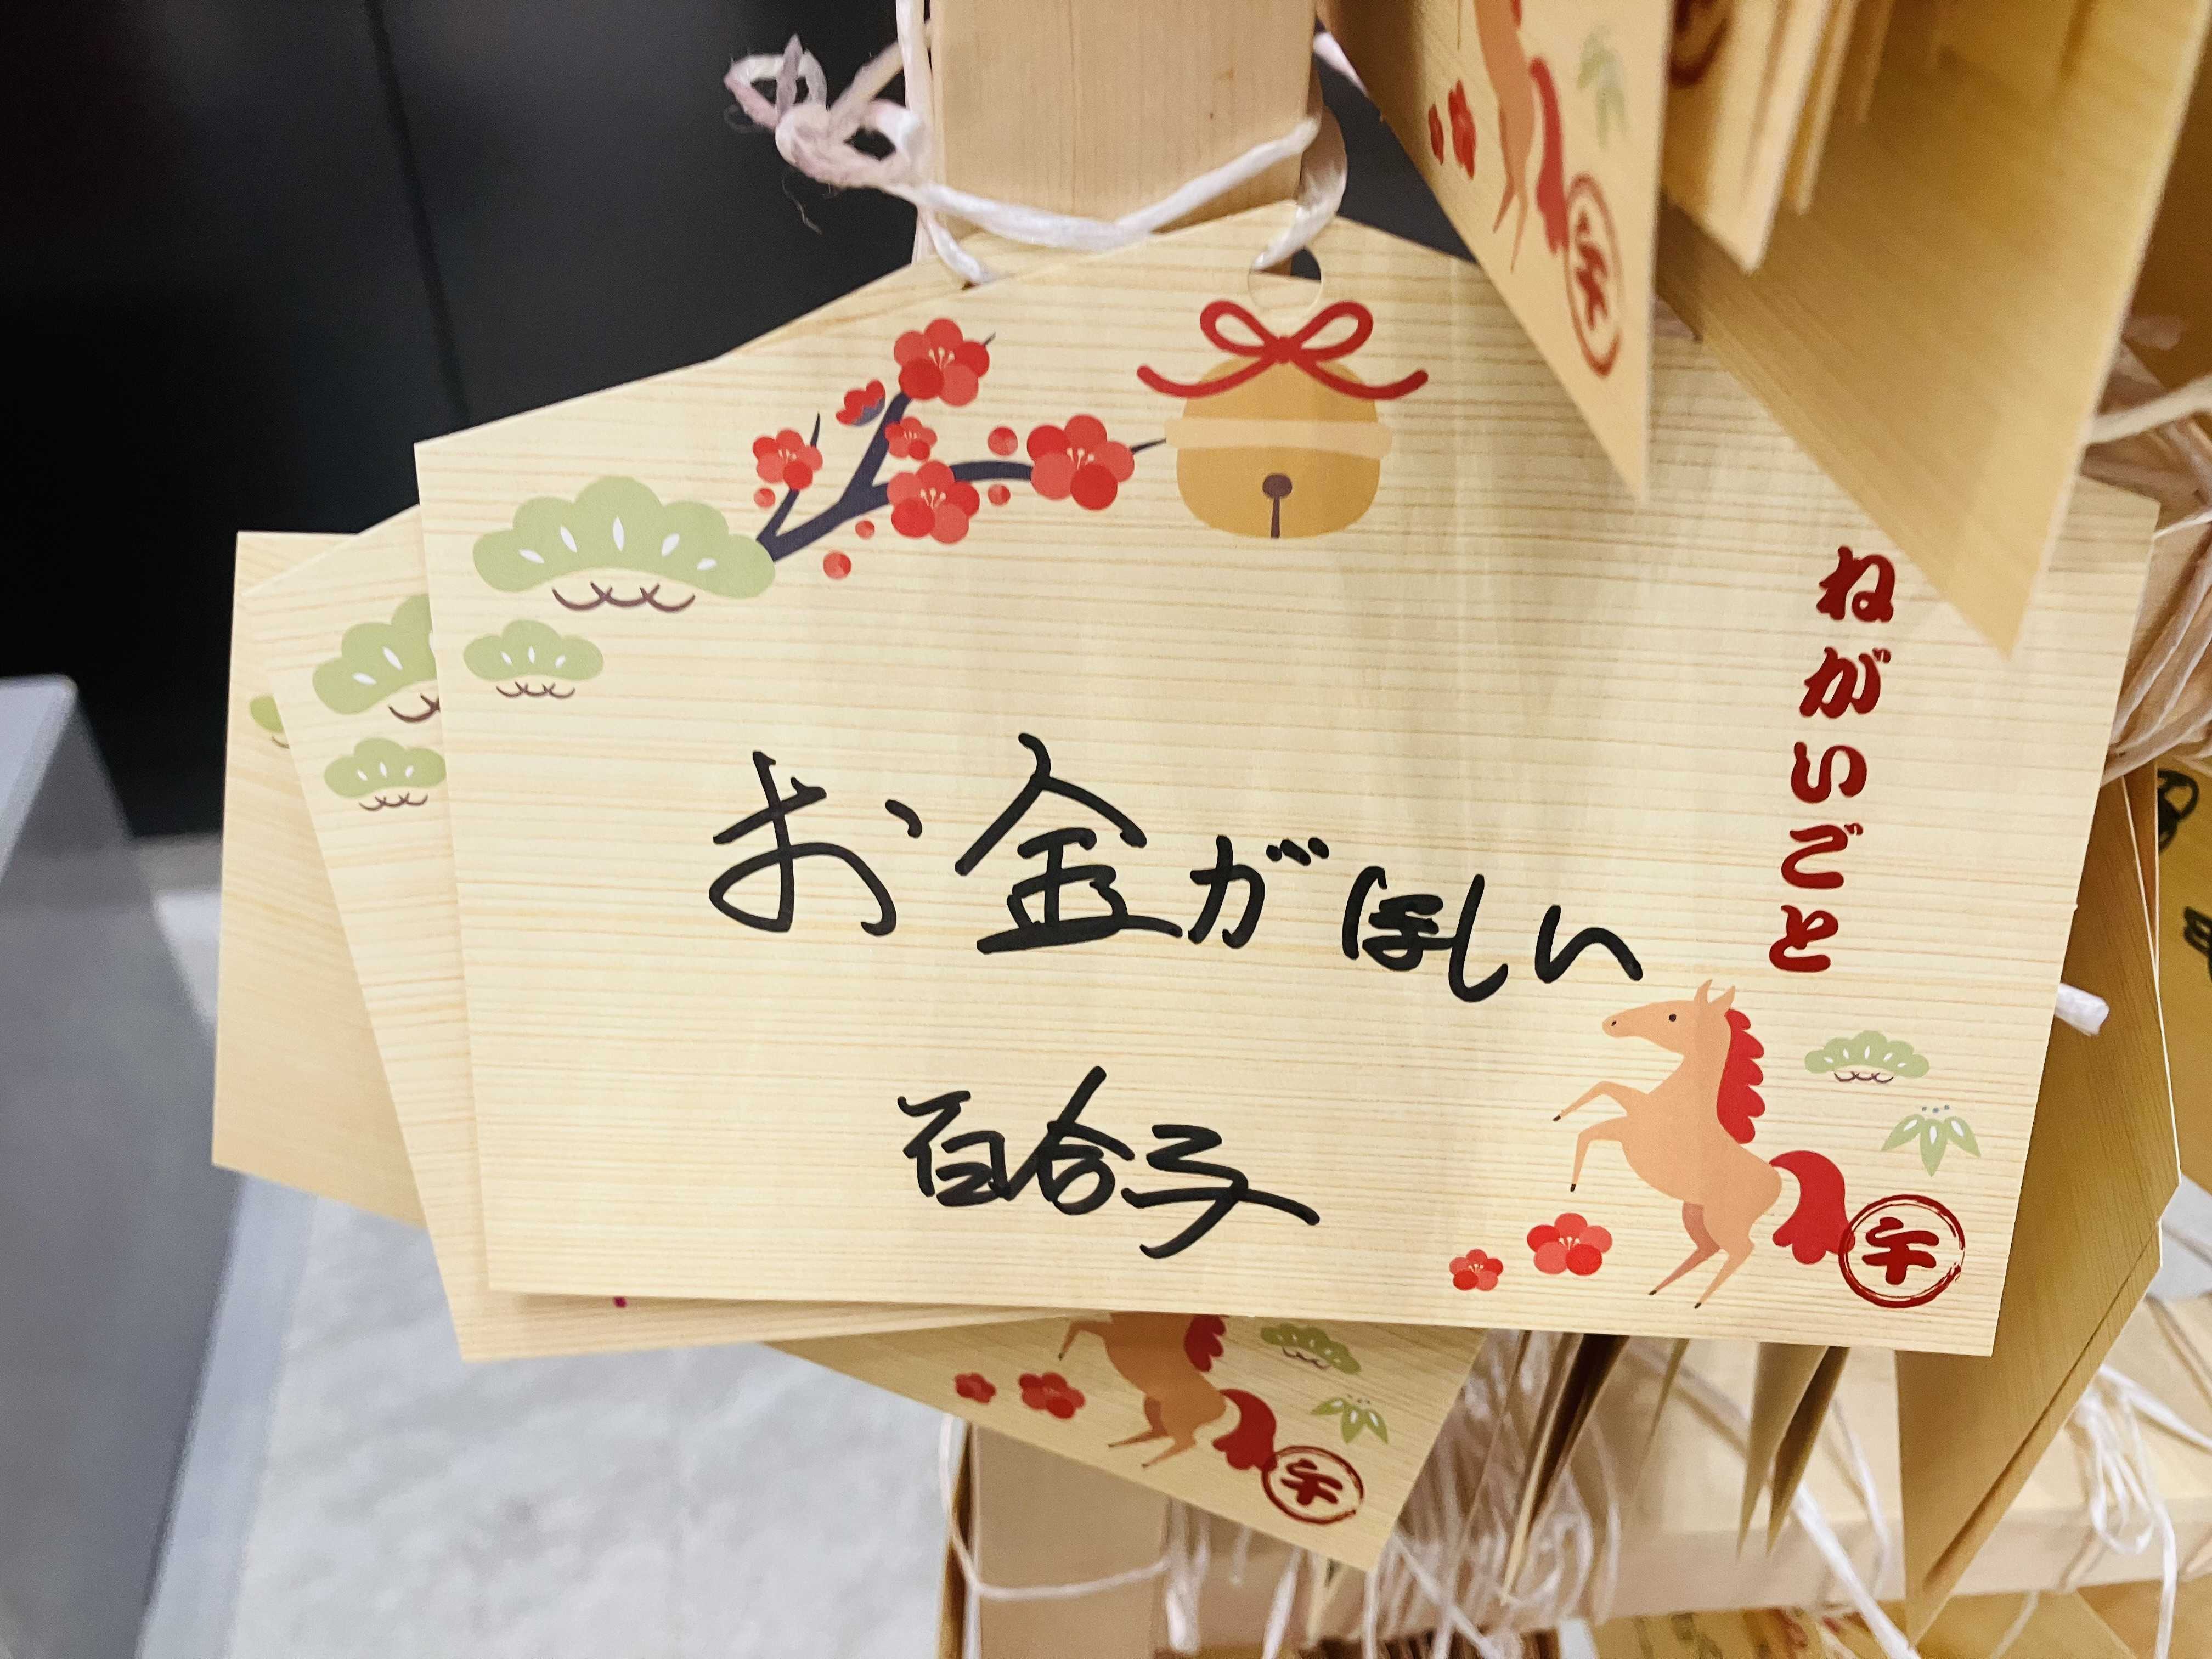 ねがいごと
お金がほしい
百合子
午
午
午